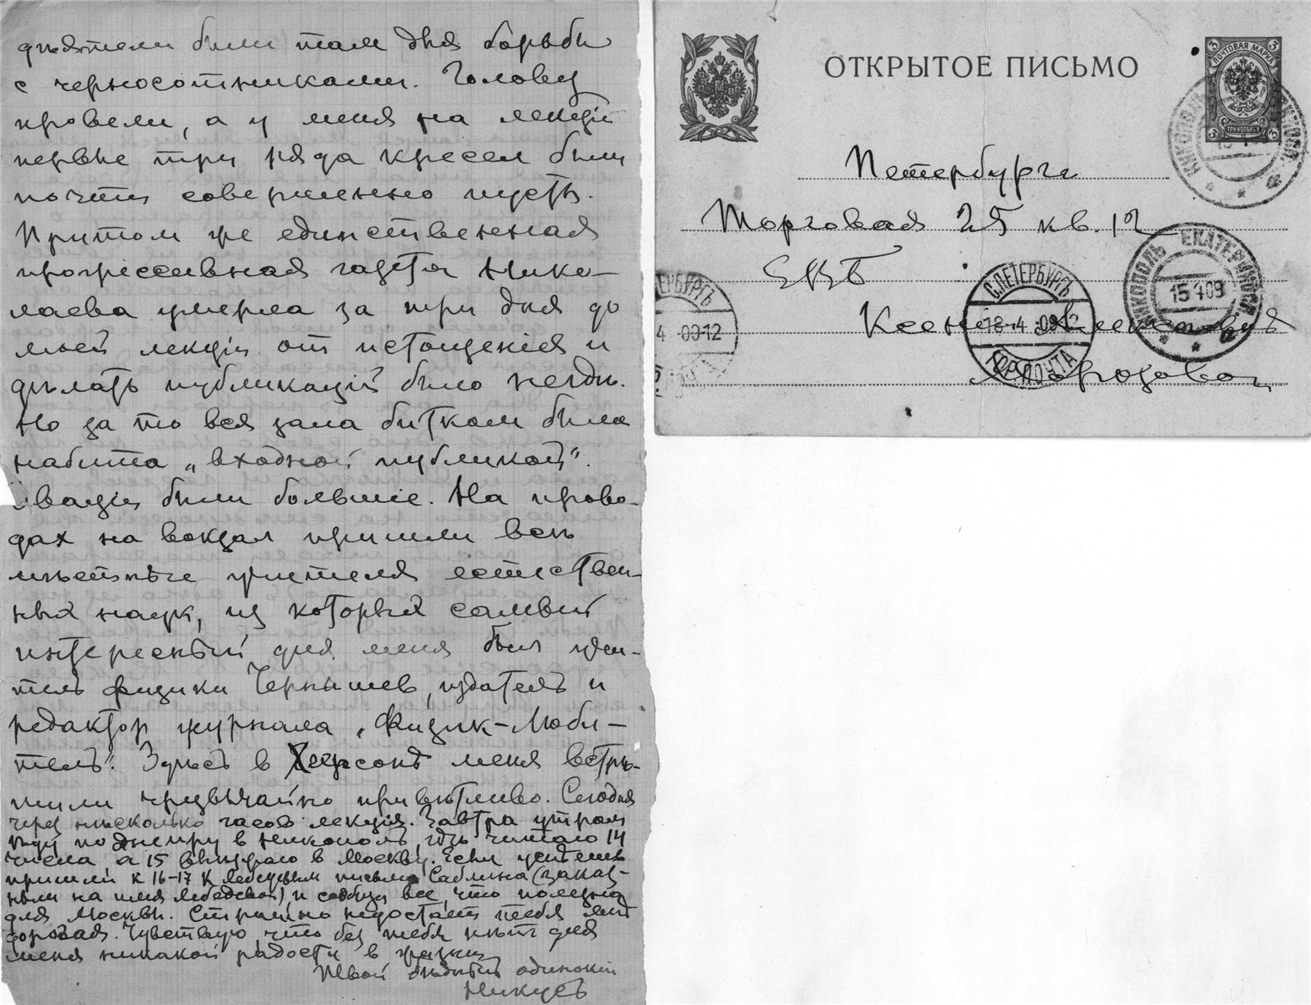 дѣятели были там для борьбы
с черносотниками. Голову
провели, а у меня на лекціи
первые три ряда кресел были
почти совершенно пусты.
Притом же единственная
прогрессивная газета Нико-
лаева умерла за три дня до
моей лекціи от истощенія и
дѣлать публикацій было негдѣ.
Но за то вся зала битком была
набита „входной публикой".
Оваціи были большіе. На прово-
дах на вокзал пришли всѣ
мѣстные учителя естествен-
ных наук, из которых самый
интересный для меня был учи-
тель физики Чернышев, издатель и
редактор журнала „Физик-Люби-
тель". Здѣсь в Херсонѣ меня встрѣ-
тили чрезвычайно привѣтливо. Сегодня
через нѣсколько часов лекція. Завтра утром
ѣду по Днѣпру в Никополь, гдѣ читаю 14
числа а 15 выѣзжаю в Москву. Если успѣешь
пришли к 16-17 к Лебедевым письмо Саблина (заказ-
ным на имя Лебедевой) и сообщи все, что полезно
для Москвы. Страшно недостает тебя моя
дорогая. Чувствую, что без тебя нѣт для
меня никакой радости в жизни
Твой одинокій
Никусь
ОТКРЫТОЕ ПИСЬМО
ПОЧТОВАЯ МАРКА
3 3
Петербург
Торговая 25 кв. 12
ЕВБ
Ксеніи Алексѣевнѣ
Морозовой
НИКОПОЛЬ ЕКАТЕРИНОСЛ.
15 4 09
С.ПЕТЕРБУРГЪ
18-4 -09 12
ГОР. ПОЧТА
ЕРБУРГЪ
4 -09 12